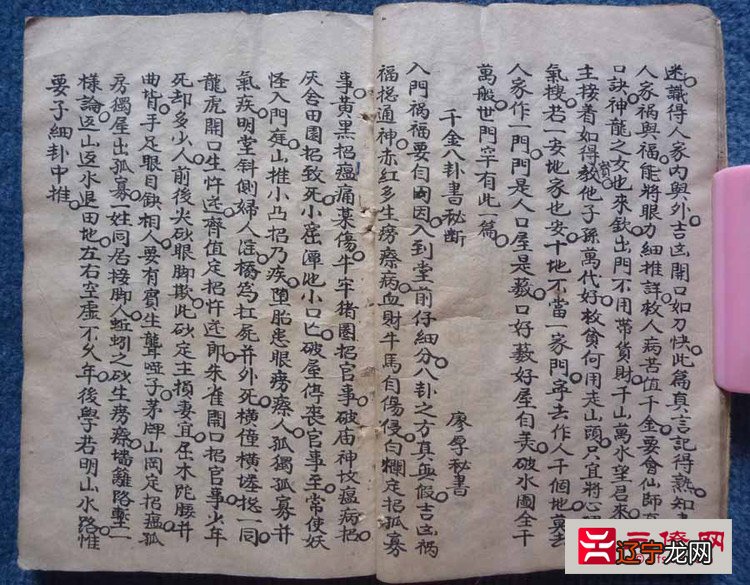 迷識得人家內與外吉凶開口如刀快此篇真言記得熟知
人家禍與福能將眼力細推詳救人病苦值千金要會仙師
口訣神龍之女也來欽出門不用帶貨財千山萬水望邑來
主接着如得教他子孫萬代好救貧何用走山頭只宜將心
氣搜若一安地家也安十地不當一家門寧去作人千個地莫去
人家作一門門是人口屋是藪口好藪好屋自美破水國全千
萬般世門罕有此一篇
廖厚秘書
千金八卦書秘斷
入門禍福要自國因入到堂前仔細分八卦之方真與假吉凶禍
福總通神赤紅多生癆瘵病血財牛馬自傷侵白爛定招孤寡
事黃黑招瘟痛藥傷牛牢猪圈招官事破庙神坟瘟病招
厌舍田園招致死小窑潭池小口亡破屋停丧官事至常使妖
怪入門庭山推小凸招乃疾墮胎患眼癆瘵人孤獨孤寡并
氣疾明堂斜側婦人淫橋為扛死并外死橫撞橫墟总一同
龍虎開口生忤逆齊值定招忤逆郎朱雀開口招官事少年
死却多少人前後火砂眼脚欺此砂定主損妻宜屈木跎腰并
曲背手足眼目缺相人要有賀生聾啞子茅牌山岡定招瘟孤
房獨屋出孤寡一姓同居接脚人蚯蚓之砂生癆瘵墙籬路塹一
樣論迈山迈水退田地左右空虛不久年後學若明山水路惟
要子細卦中推
三僚网
辽宁龙网